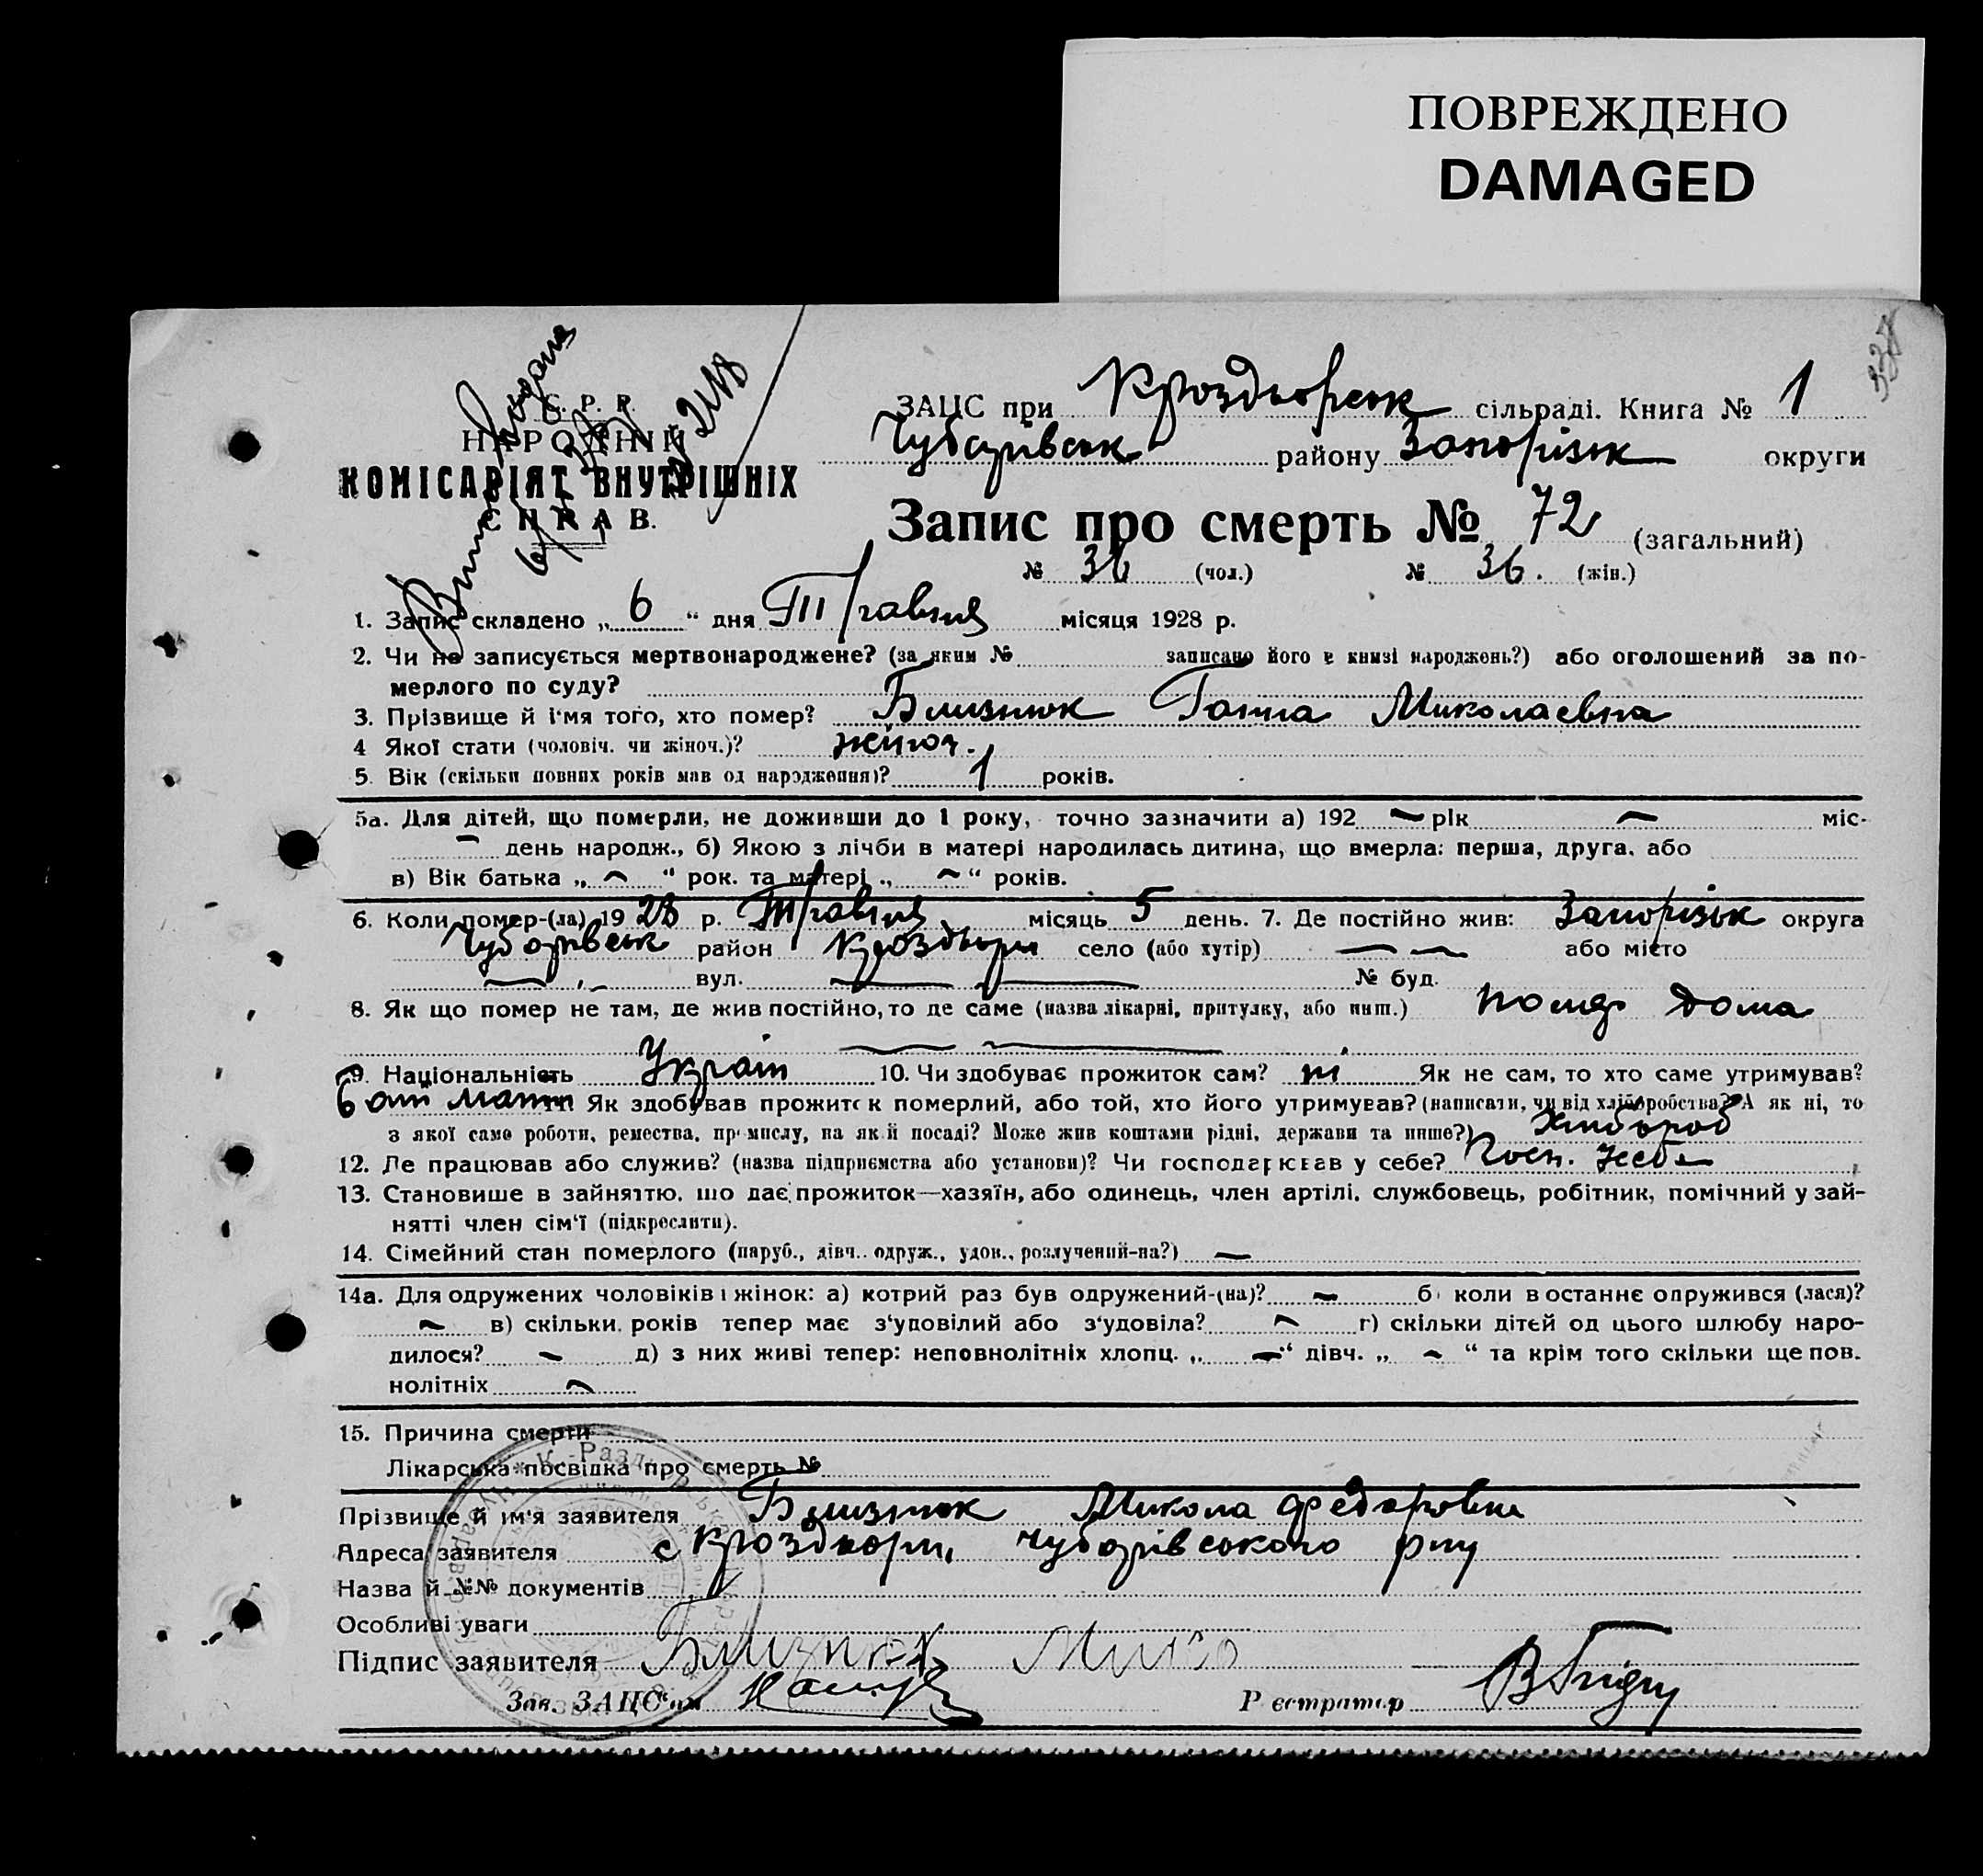 ПОВРЕЖДЕНО
DAMAGED
338
С. Р. Р.
НАРОДНІЙ
КОМІСАРІЯТ ВНУТРІШНІХ
СПРАВ.
ЗАЦС при Кроздьорськ сільраді. Книга № 1
Чубарівськ району Запорізьк округи
Запис про смерть № 72 (загальний)
№ 36 (чол.) № 36. (жін.)
1. Запис складено „ 6 “ дня Травня місяця 1928 р.
2. Чи не записується мертвонароджене? (за яким № записано його в книзі народжень?) або оголошений за по-
мерлого по суду?
3. Прізвище й і'мя того, хто помер? Близнюк Ганна Миколаевна
4 Якої стати (чоловіч. чи жіноч.)? жіноч.
5. Вік (скільки повних років мав од народження)? 1 років.
5а. Для дітей, що померли, не доживши до 1 року, точно зазначити а) 192 рік міс-
день народж., б) Якою з лічби в матері народилась дитина, що вмерла: перша, друга, або
в) Вік батька „ “ рок. та матері „ “ років.
6. Коли помер-(ла) 1928 р. Травня місяць 5 день. 7. Де постійно жив: Запорізьк округа
Чубарівськ район Кроздьори село (або хутір) — — або місто
вул. № буд.
8. Як що помер не там, де жив постійно, то де саме (назва лікарні, притулку, або инш.) дома
9. Національність Україн 10. Чи здобуває прожиток сам? ні Як не сам, то хто саме утримував?
батько 11. Як здобував прожиток померлий, або той, хто його утримував? (написати, чи від хліборобства? А як ні, то
з якої саме роботи, ремества, промислу, на якій посаді? Може жив коштами рідні, держави та инше?) Хлібороб
12. Де працював або служив? (назва підприємства або установи)? Чи господарював у себе? Госп. у себе
13. Становище в зайняттю, що дає прожиток—хазяїн, або одинець, член артілі, службовець, робітник, помічний у зай-
нятті член сім'ї (підкреслити).
14. Сімейний стан померлого (паруб., дівч., одруж., удов., розлучений-на?) —
14а. Для одружених чоловіків і жінок: а) котрий раз був одружений-(на)? б) коли в останнє одружився (лася)?
в) скільки років тепер має з'удовілий або з'удовіла? г) скільки дітей од цього шлюбу наро-
дилося? д) з них живі тепер: неповнолітніх хлопц. „ “ дівч. „ “ та крім того скільки ще пов.
нолітніх
15. Причина смерти
Лікарська посвідка про смерть №
Прізвище й ім'я заявителя Близнюк Микола Федорович
Адреса заявителя с Кроздьори, Чубарівського рну
Назва й №№ документів
Особливі уваги
Підпис заявителя Близнюк Мико
Зав. ЗАЦС'ом
Реєстратор